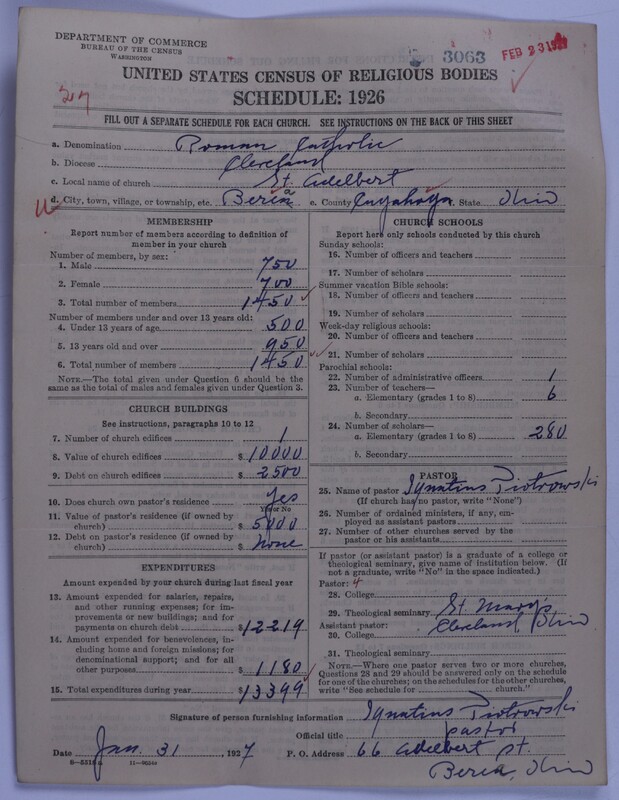 DEPARTMENT OF COMMERCE
BUREAU OF THE CENSUS
WASHINGTON
3063
FEB 23 1927
UNITED STATES CENSUS OF RELIGIOUS BODIES
SCHEDULE: 1926
FILL OUT A SEPARATE SCHEDULE FOR EACH CHURCH. SEE INSTRUCTIONS ON THE BACK OF THIS SHEET
a. Denomination Roman Catholic
b. Diocese Cleveland
c. Local name of church St. Adelbert
d. City, town, village, or township, etc. Berea e. County Cuyahoga f. State Ohio
MEMBERSHIP
Report number of members according to definition of
member in your church
Number of members, by sex:
1. Male 750
2. Female 700
3. Total number of members 1450
Number of members under and over 13 years old:
4. Under 13 years of age 500
5. 13 years old and over 950
6. Total number of members 1450
NOTE.—The total given under Question 6 should be the
same as the total of males and females given under Question 3.
CHURCH BUILDINGS
See instructions, paragraphs 10 to 12
7. Number of church edifices 1
8. Value of church edifices $10000
9. Debt on church edifices $2500
10. Does church own pastor's residence Yes
Yes or No
11. Value of pastor's residence (if owned by
church) $5000
12. Debt on pastor's residence (if owned by
church) $none
EXPENDITURES
Amount expended by your church during last fiscal year
13. Amount expended for salaries, repairs,
and other running expenses; for im-
provements or new buildings; and for
payments on church debt $12219
14. Amount expended for benevolences, in-
cluding home and foreign missions; for
denominational support; and for all
other purposes $1180
15. Total expenditures during year $13399
CHURCH SCHOOLS
Report here only schools conducted by this church
Sunday schools:
16. Number of officers and teachers
17. Number of scholars
Summer vacation Bible schools:
18. Number of officers and teachers
19. Number of scholars
Week-day religious schools:
20. Number of officers and teachers
21. Number of scholars
Parochial schools:
22. Number of administrative officers 1
23. Number of teachers—
a. Elementary (grades 1 to 8) 6
b. Secondary
24. Number of scholars—
a. Elementary (grades 1 to 8) 280
b. Secondary
PASTOR
25. Name of pastor Ignatius Piotrowski
(If church has no pastor, write "None")
26. Number of ordained ministers, if any, em-
ployed as assistant pastors
27. Number of other churches served by the
pastor or his assistants
If pastor (or assistant pastor) is a graduate of a college or
theological seminary, give name of institution below. (If
not a graduate, write "No" in the space indicated.)
Pastor: 4
28. College
29. Theological seminary St. Mary's
Assistant pastor: Cleveland, Ohio
30. College
31. Theological seminary
NOTE.—Where one pastor serves two or more churches,
Questions 28 and 29 should be answered only on the schedule
for one of the churches; on the schedules for the other churches,
write "See schedule for church."
Signature of person furnishing information Ignatius Piotrowski
Official title pastor
Date Jan. 31 1927 P. O. Address 66 Adelbert St.
Berea, Ohio